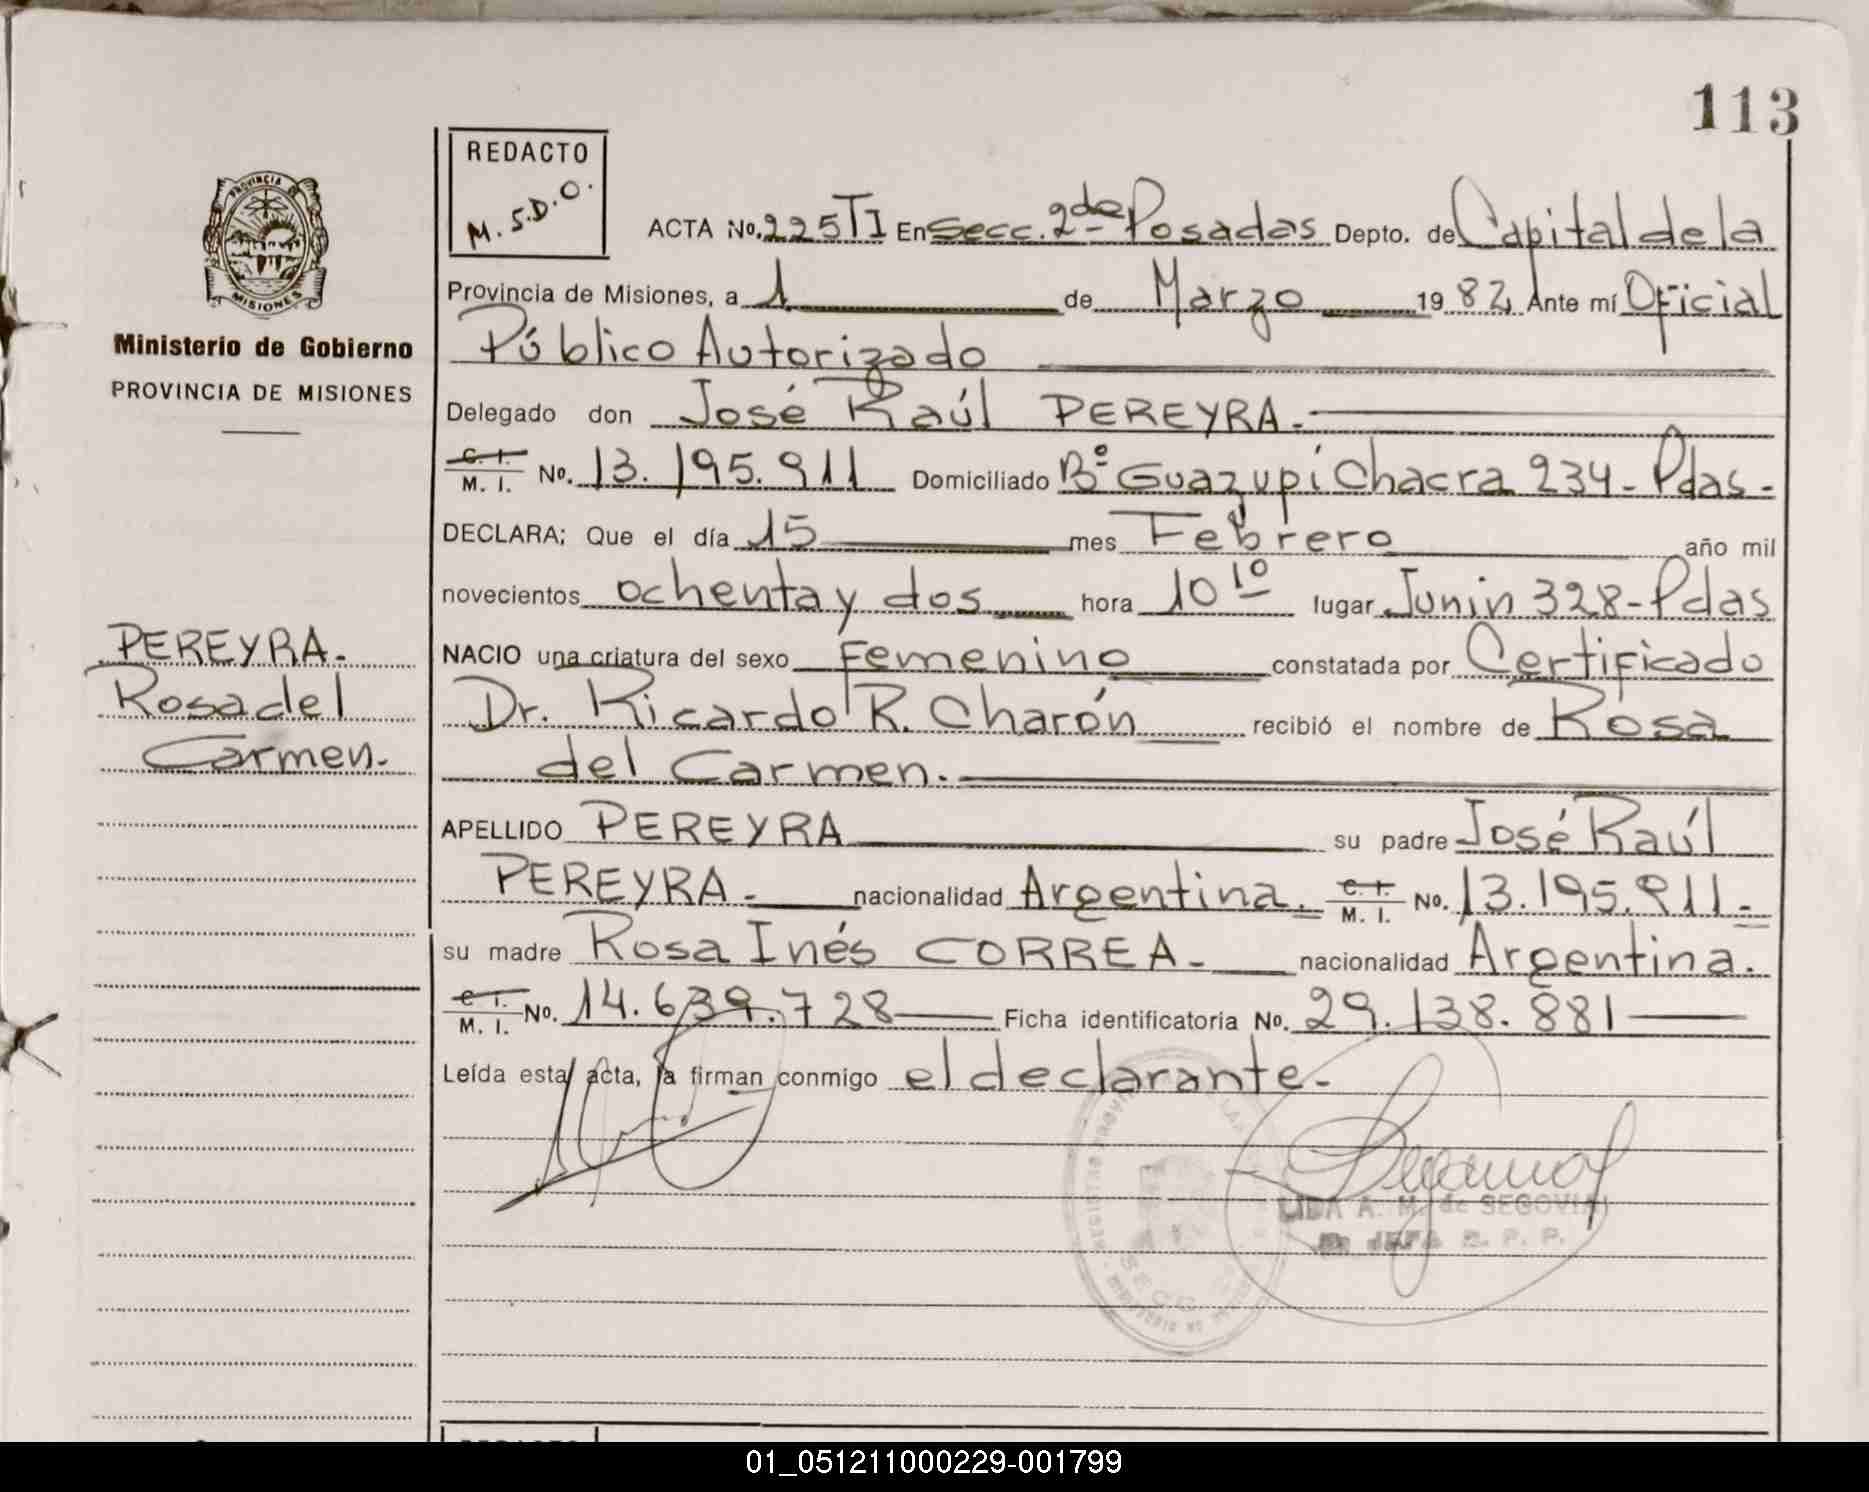 113
REDACTO
M. S.D.O.
PROVINCIA DE
MISIONES
Ministerio de Gobierno
PROVINCIA DE MISIONES
PEREYRA.
Rosa del
Carmen.
ACTA No. 225 TI En Secc. 2da Posadas Depto. de Capital de la
Provincia de Misiones, a 1 de Marzo 1982, Ante mí Oficial
Público Autorizado
Delegado don José Raúl PEREYRA.
C. I. M. I. No. 13.195.911 Domiciliado Bº Guazupi Chacra 234 - Pdas -
DECLARA; Que el día 15 mes Febrero año mil
novecientos ochenta y dos hora 10 10 lugar Junin 328 - Pdas
NACIO una criatura del sexo Femenino constatada por Certificado
Dr. Ricardo R. Charón recibió el nombre de Rosa
del Carmen.
APELLIDO PEREYRA su padre José Raúl
PEREYRA. nacionalidad Argentina. C. I. M. I. No. 13.195.911.-
su madre Rosa Inés CORREA. nacionalidad Argentina.
C. I. M. I. No. 14.639.728 Ficha identificatoria No. 29.138.881
Leída esta acta, la firman conmigo el declarante.
LIDA A. M. de SEGOVIA
JEFA R. P. P.
SECC.
01_051211000229-001799